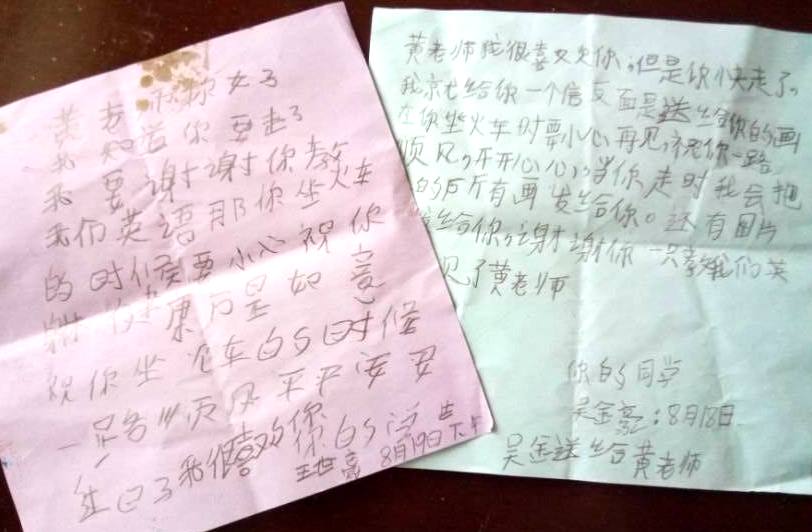 黄老师你好
我知道你要走了
我要谢谢你教
我们英语那你坐火车
的时候要小心祝你
健康万里如意
祝你坐火车的时候
一路顺风平平安安
生日了我很喜欢你
你的学生
王世豪 8月19日下午
黄老师我很喜欢你,但是你快走了。
我就给你一个信反面是送给你的画
在你坐火车时要小心再见,祝你一路
顺风,开开心心,当你走时我会把
的所有画发给你。还有图片
给你,谢谢你一只教我们英
见了黄老师
你的同学
吴金豪:8月18日
吴金送给黄老师